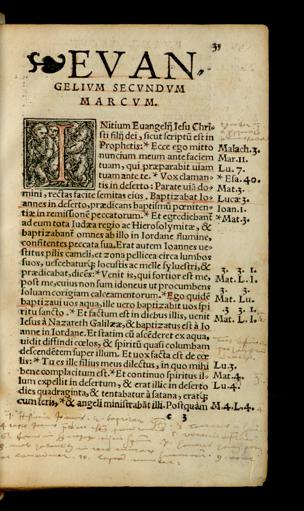 EVAN-
GELIVM SECVNDVM
MARCVM.
INitium Euangelij Iesu Chri
sti filij dei, sicut scriptũ est in
Prophetis: * Ecce ego mitto
nuncium meum ante faciem
tuam, qui præparabit uiam
tuam ante te. * Vox claman-
tis in deserto: Parate uiã do-
mini, rectas facite semitas eius, Baptizabat Io-
annes in deserto, prædicans baptismũ pœniten-
tiæ in remissionẽ peccatorum. * Et egrediebant̃
ad eum tota Iudæa regio ac Hierosolymitæ, &
baptizabant̃ omnes ab illo in Iordane flumine,
confitentes peccata sua. Erat autem Ioannes ue-
stitus pilis cameli, et zona pellicea circa lumbos
suos, uescebaturq́; locustis ac melle syluestri, &
prædicabat, dicẽs: * Venit is, qui fortior est me,
post me, cuius non sum idoneus ut procumbens
soluam corigiam calceamentorum. * Ego quidẽ
baptizaui uos aqua, ille uero baptizabit uos spi
ritu sancto. * Et factum est in diebus illis, uenit
Iesus à Nazareth Galilææ, & baptizatus est à Io
anne in Iordane. Et statim cũ ascẽderet ex aqua,
uidit diffindi cœlos, & spiritũ quasi columbam
descendẽtem super illum. Et uox facta est de cœ
lis: * Tu es ille filius meus dilectus, in quo mihi
bene complacitum est. * Et continuo spiritus il-
lum expellit in desertum, & erat illic in deserto
dies quadraginta, & tentabatur à satana, eratq́;
cum feris, * & angeli ministrabãt illi. Postquàm
c 3
Malach.3.
Mar.11.
Lu.7.
* Esa.40.
Mat.3.
Lucæ 3.
Ioan.1.
*Mat.3.
3. 3. 1.
Mat. L. I.
3. 3.
Mat. Lu.
3. 3. 1.
Mat. L. I.
Lu.3.
Mat.4.
Lu.4.
M.4.L.4.